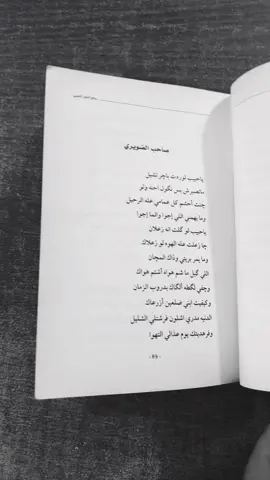 صاحب الضويري
ياحبيب لو ردت باچر تشيل
ماتصيرش بس نگول احنه ولو
چنت احشم كل عمامي عله الرحيل
وما يهمني اللي إجوا والما إجوا
ياحبيب لو گلت انه زعلان
چا زعلت عله الهوه لو زعلاك
وما يمر بريتي وذاك المچان
اللي گبل ما شم هواه أشتم هواك
وچني لگطه ألگاك بدروب الزمان
وكيفيت ابني ضلعين أزرعاك
الدنيه مدري اشلون فرشتلي الشليل
وفرهديتك يوم عذالي التهوا